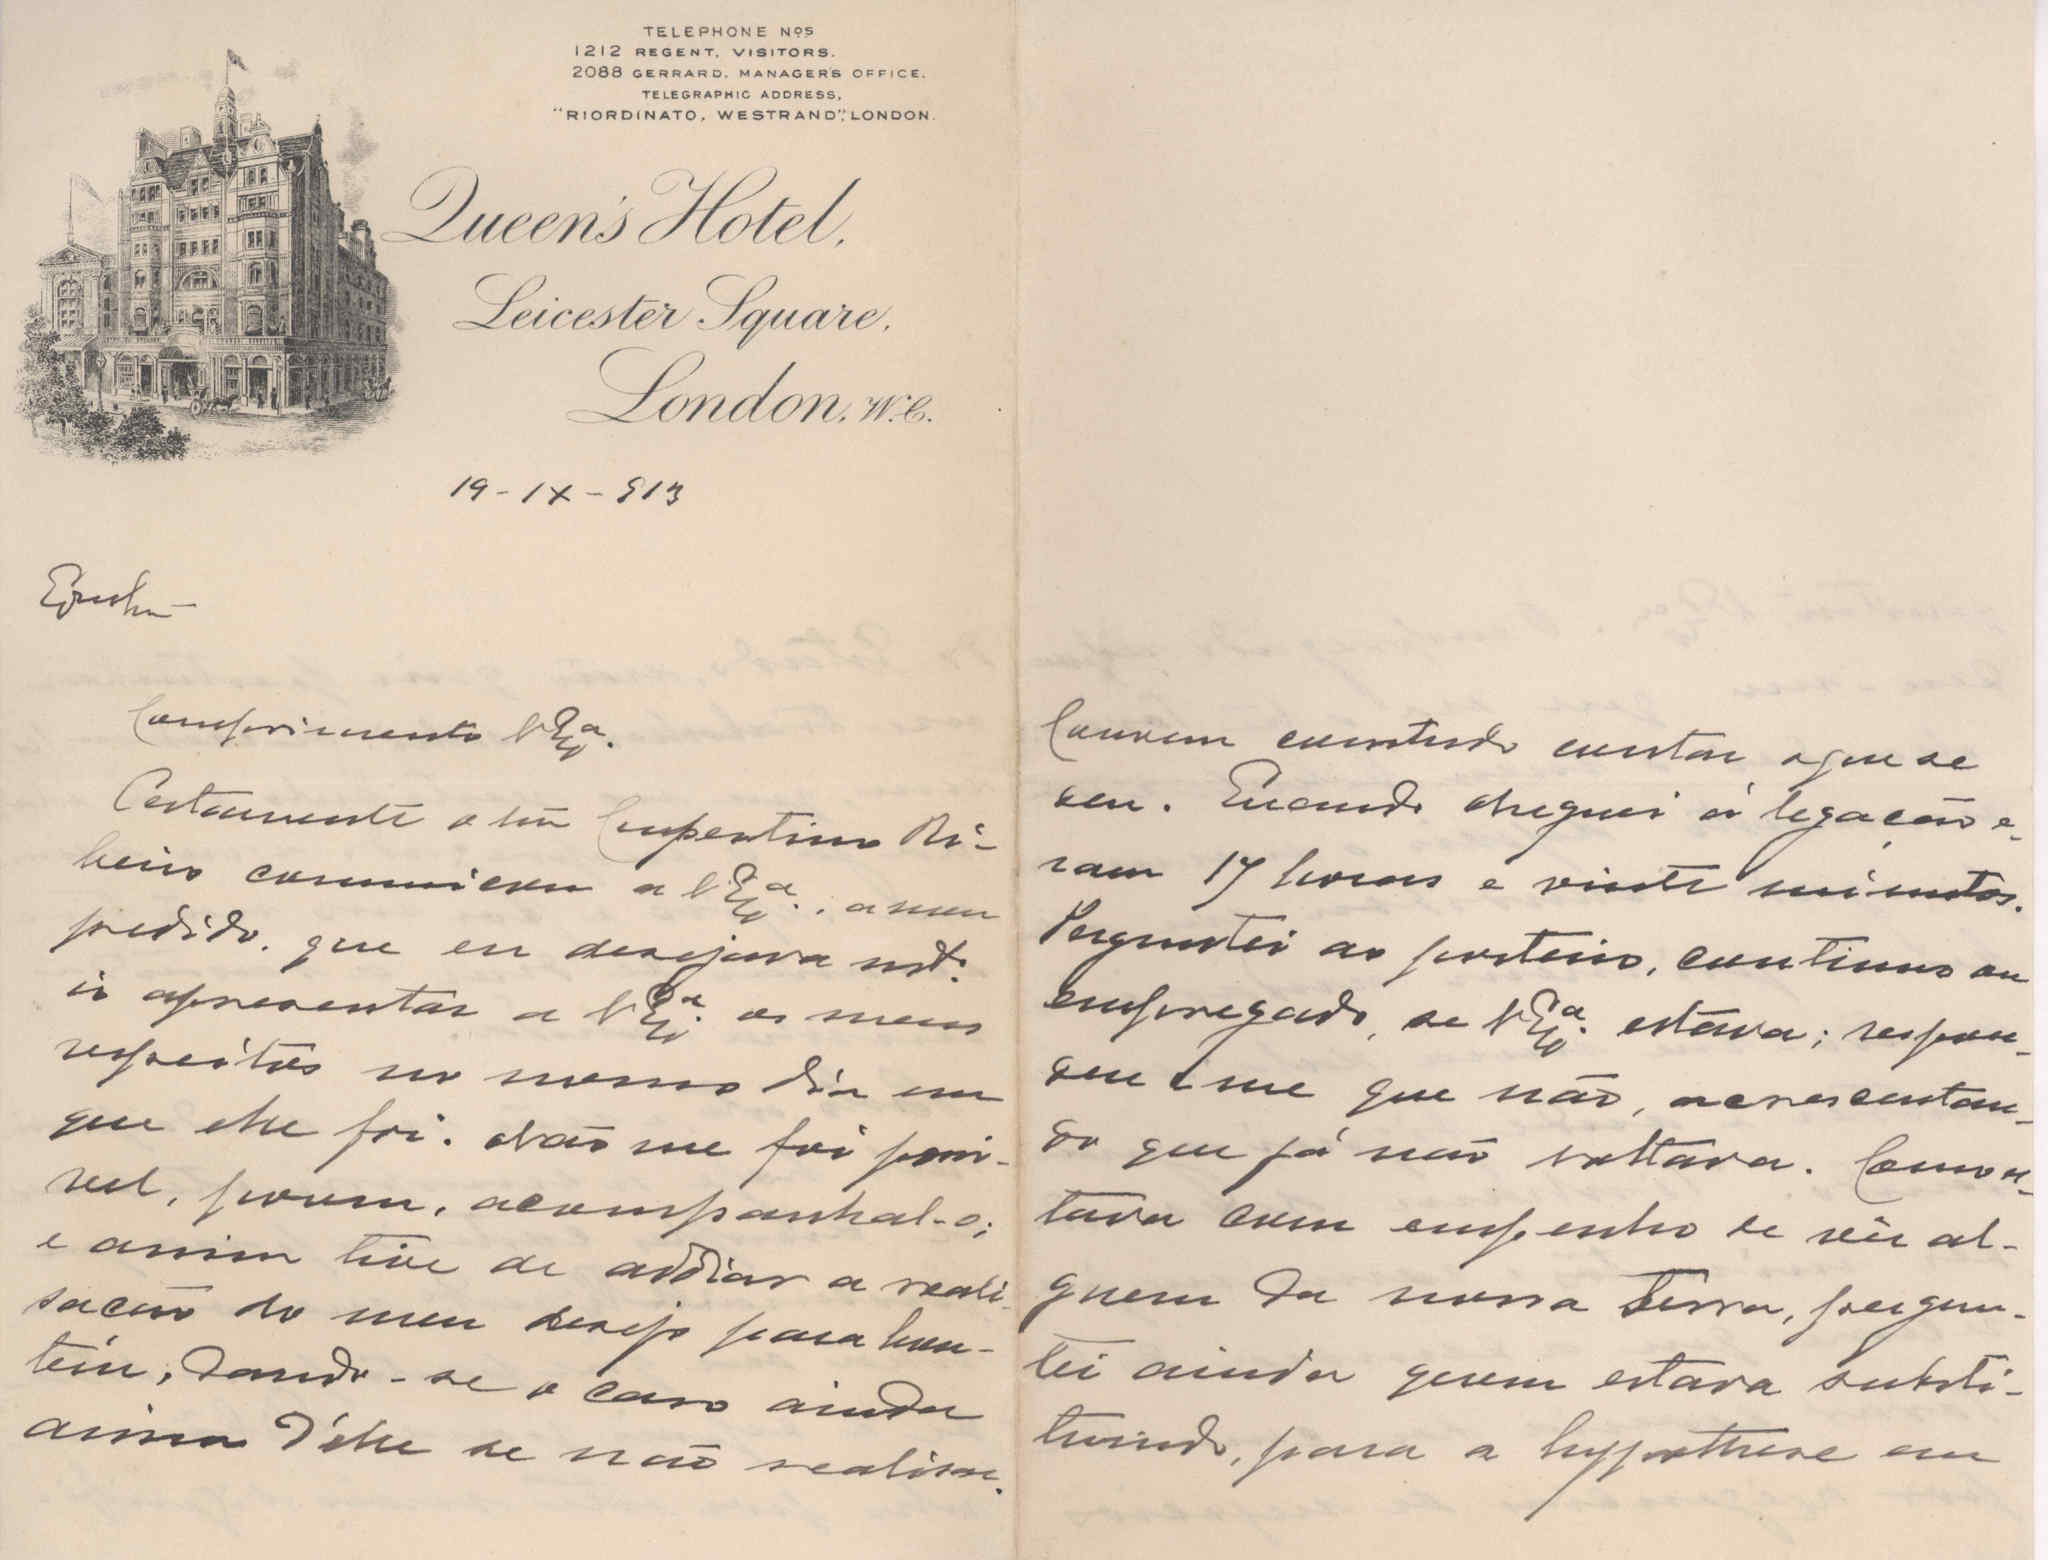 TELEPHONE Nos
1212 REGENT, VISITORS.
2088 GERRARD, MANAGER'S OFFICE.
TELEGRAPHIC ADDRESS,
"RIORDINATO, WESTRAND", LONDON.
Queen's Hotel,
Leicester Square,
London, W.C.
19-IX-913
Comprimento V Exª.
Certamente o Snr Lupertino Ri-
beiro communicou a V Exª., a meu
pedido, que eu desejava
ir apresentar a V Exª. os meus
respeitos no mesmo dia em
que elle foi. Não me foi possi-
vel, porem, acompanhal-o;
e assim tive de addiar a reali-
sação do meu desejo para hon-
tem, dando-se o caso ainda
assim d'elle se não realisar.
Convem comtudo contar o que se
deu. Quando cheguei á legação e-
ram 17 horas e vinte minutos.
Perguntei ao porteiro, continuo ou
empregado, se V Exª. estava; respon-
deu-me que não, acrescentan-
do que já não voltava. Como es-
tava com empenho de vêr al-
guem da nossa Terra, pergun-
tei ainda quem estava substi-
tuindo, para a hypothese em